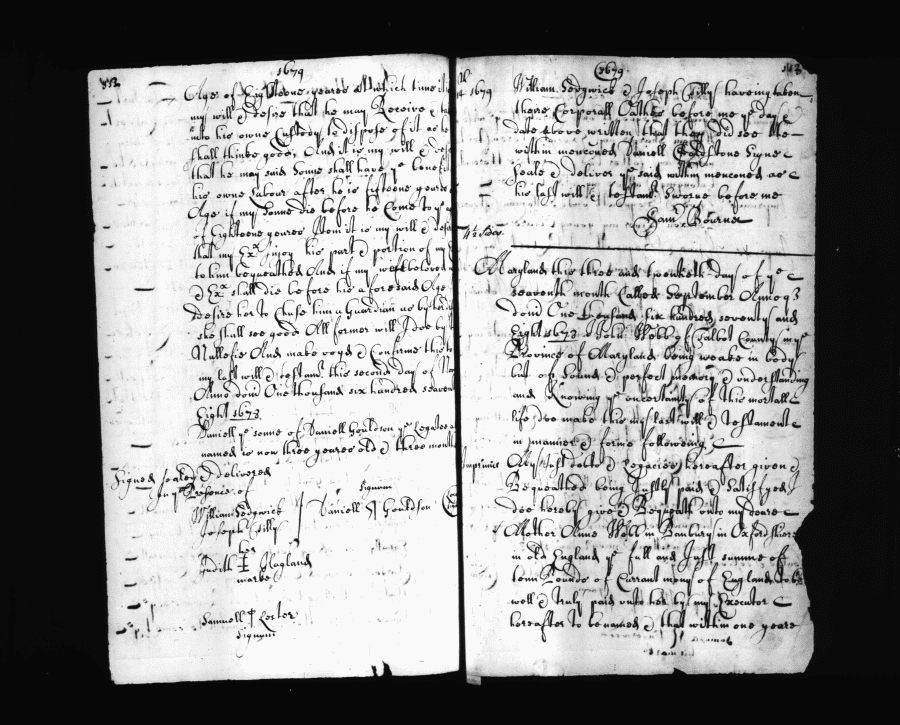 1679
Age of Eighteene yeares At which time it is
my will & desire that he may Receive &
into his owne Custody to dispose of it as he
shall thinke good, And it is my will & desire
that he my said Sonne shall have ye benefit
his owne Labour after he is fifteene yeares
Age if my Sonne die before he Come to ye
of Eighteene yeares Item it is my will & desire
that my Exx Injoy his part & portion of my
to him bequeathed And if my welbeloved
& Exx shall die before his aforesaid Age
desire her to Chuse him a Guardian as by her
she shall see good All former will I doe by
Nullefie And make voyd & Confirme this to
my last will & testamt this second day of
Anno domi One thousand six hundred seaven
Eight 1678
Daniell ye sonne of Daniell Gouldson ye Legatee
named is now three yeares old & three
Signed sealed & delivered
in ye Presence of
William Sedgwick
Joseph Tilly
Signum
Daniell Gouldson
her
Judith Hagland
marke
Samuell Lester
Signum
1679
143
1679 William Sedgwick & Joseph Tilly haveing taken
there Corporall Oathes before me ye day &
date above written that they did see the
within menconed Daniell Gouldstone Signe
Seale & deliver ye said within menconed as
his last will & testamt Sworne before me
Samll Bourne
Maryland this three and twentieth day of ye
seaventh month Called September Anno
domi One thousand six hundred seventy and
Eight 1678 I John Webb of Talbot County in ye
Province of Maryland being weake in body
but of sound & perfect memory & understanding
and Knowing ye uncertainty of this mortall
life doe make this my last will & testament
in manner & forme following
Imprimis My Just debts & Legacies hereafter given &
Bequeathed being Justly paid & Satisfyed
doe hereby give & Bequeath unto my deare
Mother Anne Webb in Banbury in Oxfordshire
in old England ye full and Just summe of
tenn Pounds of Currant mony of England to be
well & truly paid unto her by my Executor
hereafter to be named & that within one yeare